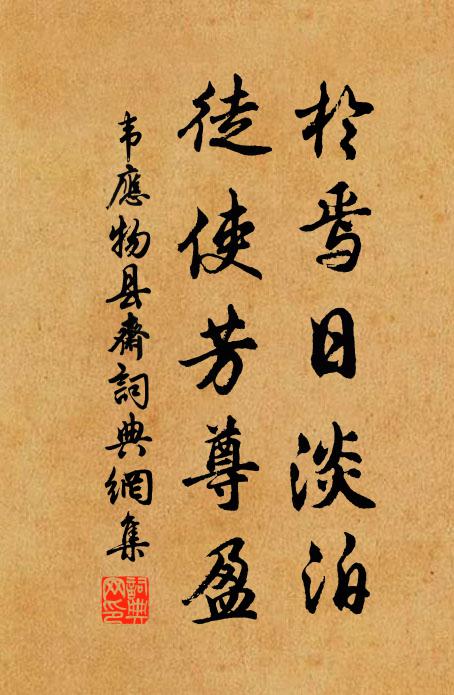 於焉日淡泊
徒使芳尊盈
韦應物县齋詞典網集
詞典网印